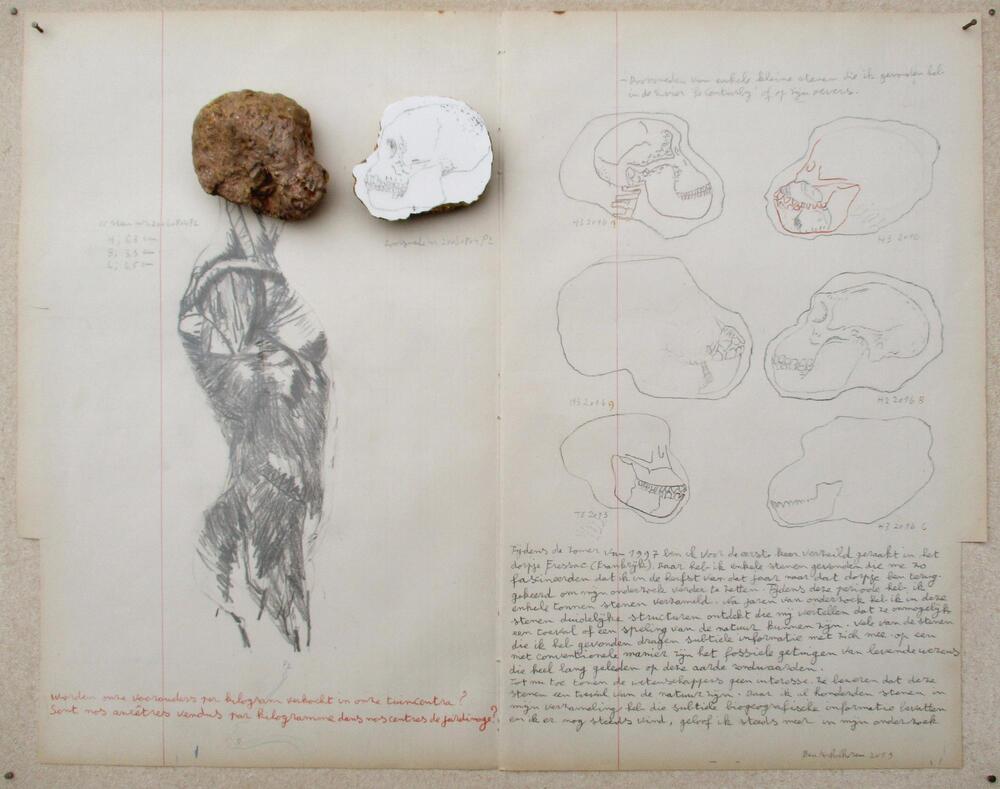 - Doorsneden van enkele kleine stenen die ik gevonden heb
in de rivier 'Le Conturby' of op zijn oevers.
H: 6,3 cm
B: 5,5 cm
L: 6,5 cm
HS 2016
HS 2016
HS 2016 9
H2 2016 B
TE 2013
H3 2016 C
Tijdens de zomer van 1997 ben ik voor de eerste keer verzeild geraakt in het
dorpje Fressac (Frankrijk). Daar heb ik enkele stenen gevonden die me zo
fascineerden dat ik in de herfst van dat jaar naar dat dorpje ben terug-
gekeerd om mijn onderzoek verder te zetten. Tijdens deze periode heb ik
enkele tonnen stenen verzameld. Na jaren van onderzoek heb ik in deze
stenen duidelijke structuren ontdekt die mij vertellen dat ze onmogelijk
een toeval of een speling van de natuur kunnen zijn. Vele van de stenen
die ik heb gevonden dragen subtiele informatie met zich mee. Op een
niet conventionele manier zijn het fossiele getuigen van levende wezens
die heel lang geleden op deze aarde rondwaarden.
Tot nu toe tonen de wetenschappers geen interesse. Ze beweren dat deze
stenen een toeval van de natuur zijn. Daar ik al honderden stenen in
mijn verzameling heb die subtiele biogeografische informatie bevatten
en ik er nog steeds vind, geloof ik steeds meer in mijn onderzoek
P2
Worden onze voorouders per kilogram verkocht in onze tuincentra?
Sont nos ancêtres vendus par kilogramme dans nos centres de jardinage?